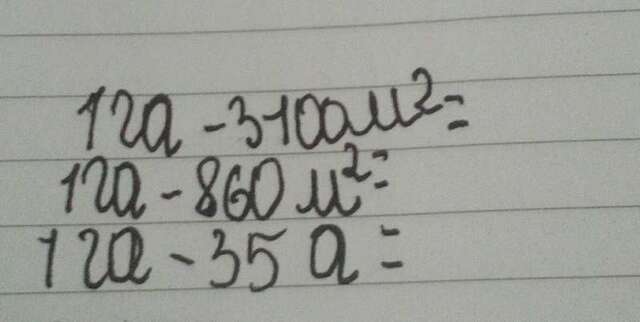 12а - 3100м²=
12а - 860 м²=
12а - 35 а =